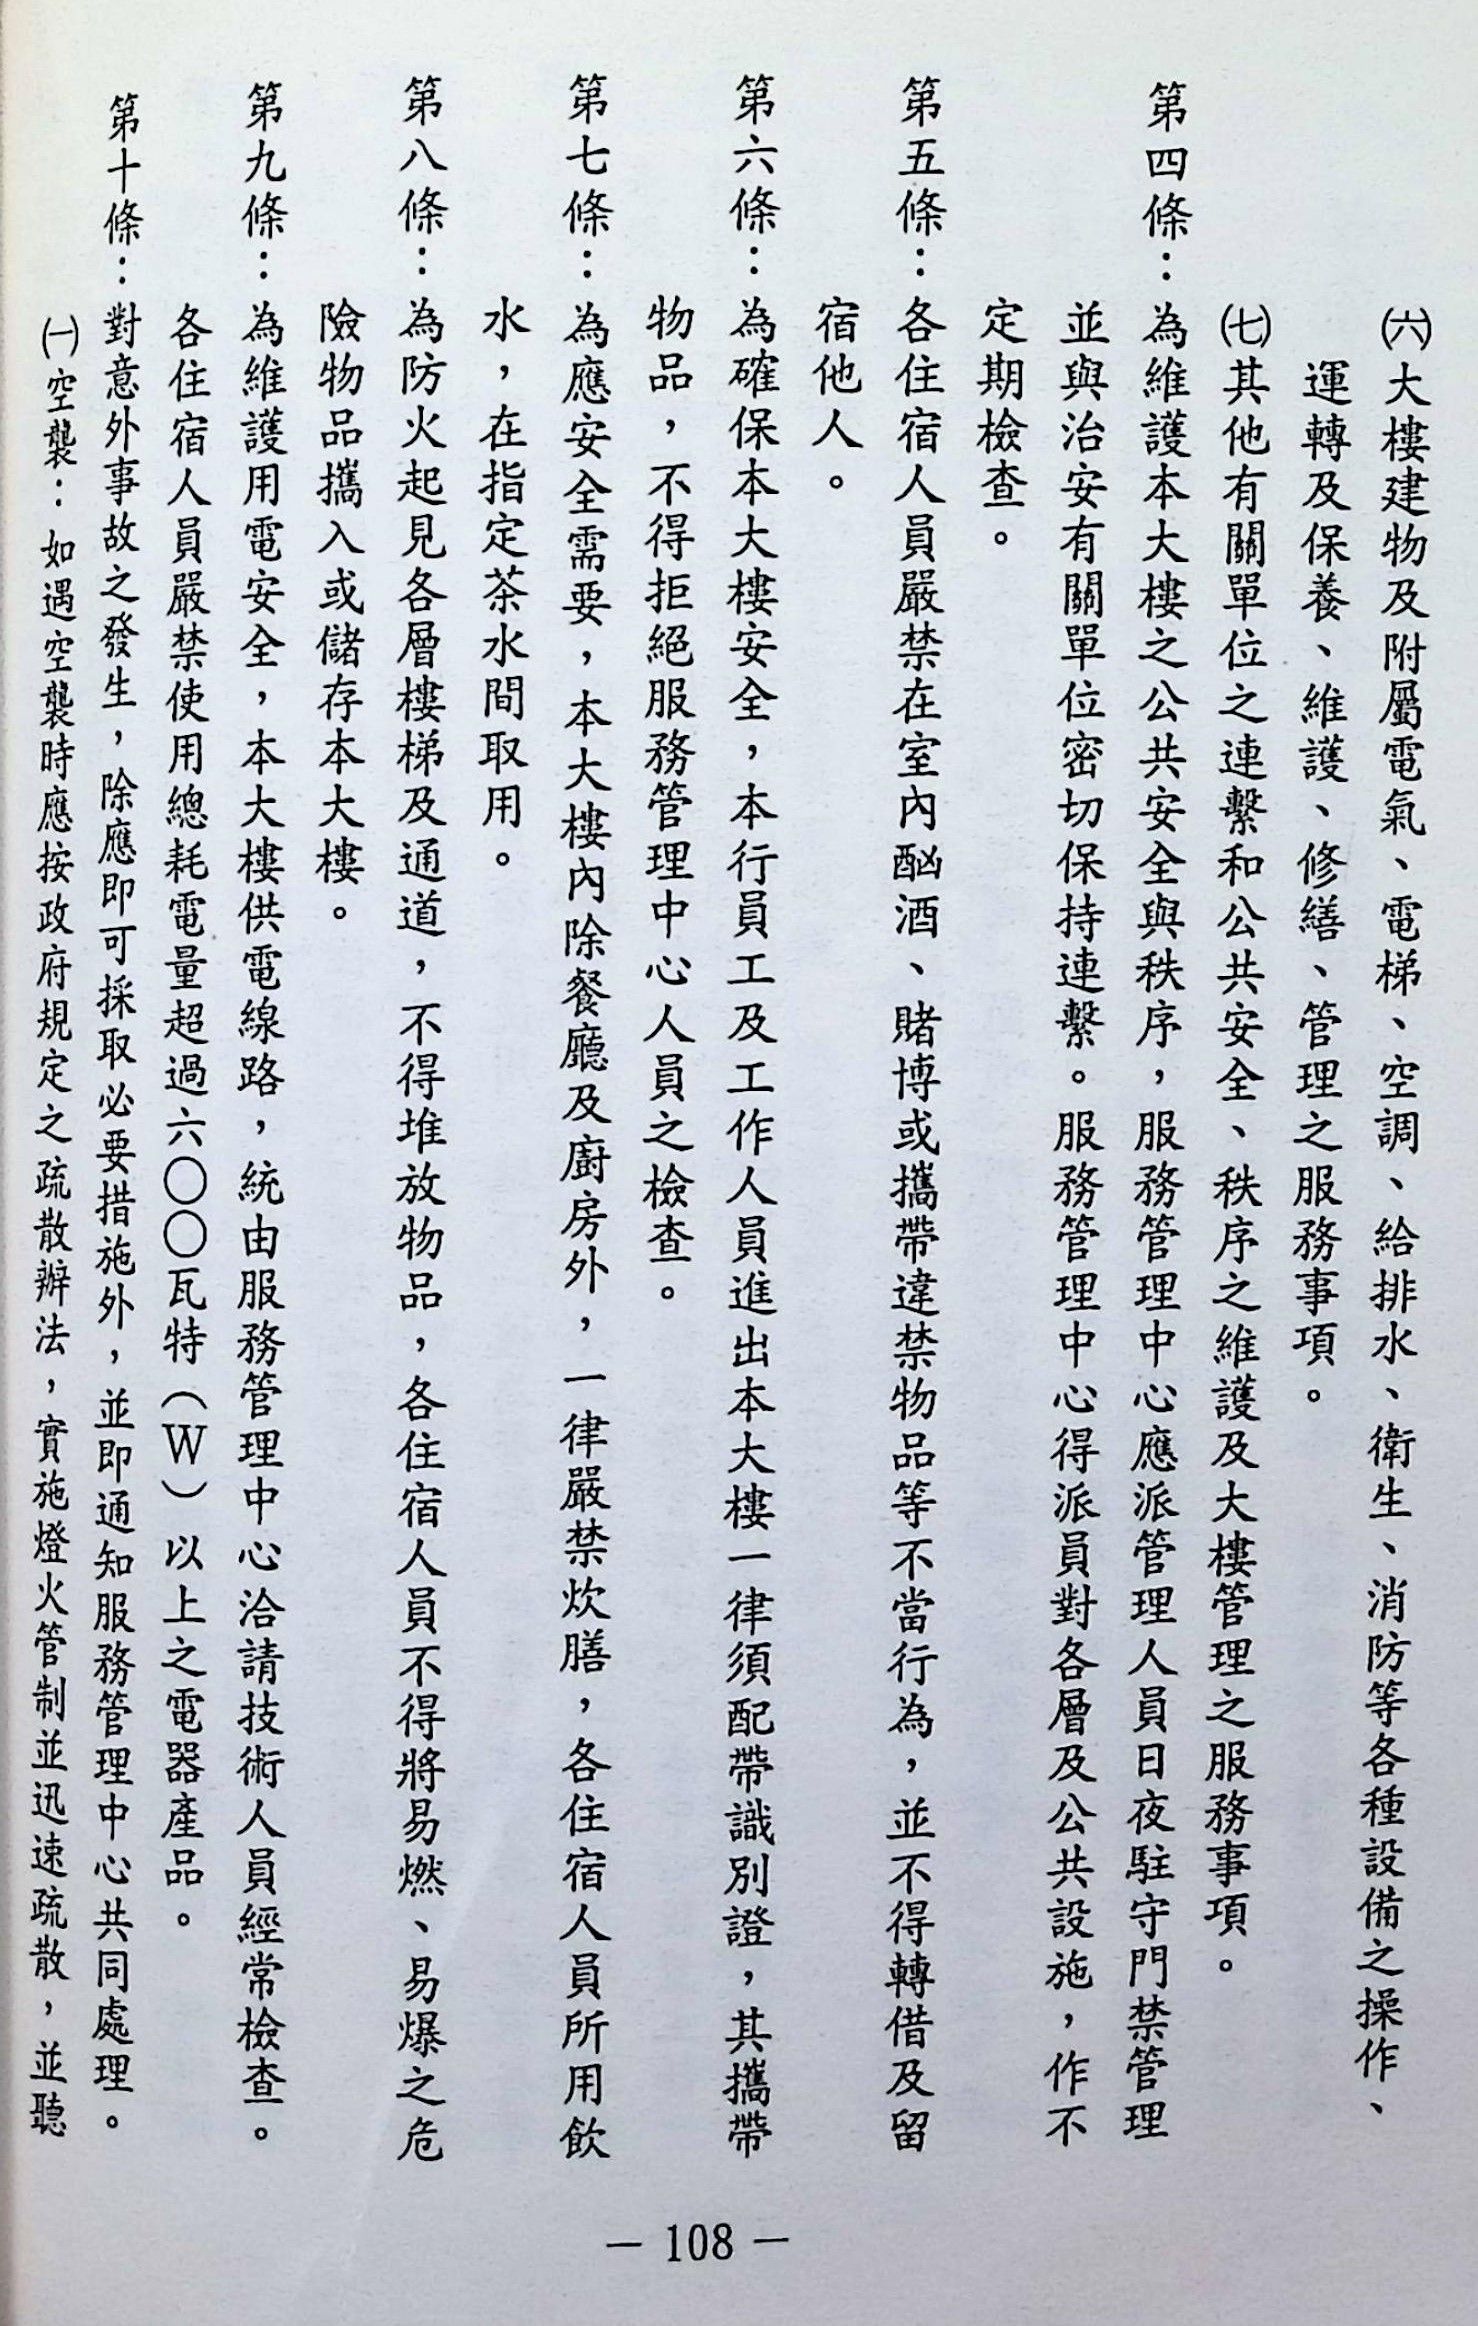 ㈥大樓建物及附屬電氣、電梯、空調、給排水、衛生、消防等各種設備之操作、
運轉及保養、維護、修繕、管理之服務事項。
㈦其他有關單位之連繫和公共安全、秩序之維護及大樓管理之服務事項。
第四條：為維護本大樓之公共安全與秩序，服務管理中心應派管理人員日夜駐守門禁管理
並與治安有關單位密切保持連繫。服務管理中心得派員對各層及公共設施，作不
定期檢查。
第五條：各住宿人員嚴禁在室內酗酒、賭博或攜帶違禁物品等不當行為，並不得轉借及留
宿他人。
第六條：為確保本大樓安全，本行員工及工作人員進出本大樓一律須配帶識別證，其攜帶
物品，不得拒絕服務管理中心人員之檢查。
第七條：為應安全需要，本大樓內除餐廳及廚房外，一律嚴禁炊膳，各住宿人員所用飲
水，在指定茶水間取用。
第八條：為防火起見各層樓梯及通道，不得堆放物品，各住宿人員不得將易燃、易爆之危
險物品攜入或儲存本大樓。
第九條：為維護用電安全，本大樓供電線路，統由服務管理中心洽請技術人員經常檢查。
各住宿人員嚴禁使用總耗電量超過六〇〇瓦特（W）以上之電器產品。
第十條：對意外事故之發生，除應即可採取必要措施外，並即通知服務管理中心共同處理。
㈠空襲：如遇空襲時應按政府規定之疏散辦法，實施燈火管制並迅速疏散，並聽
— 108 —